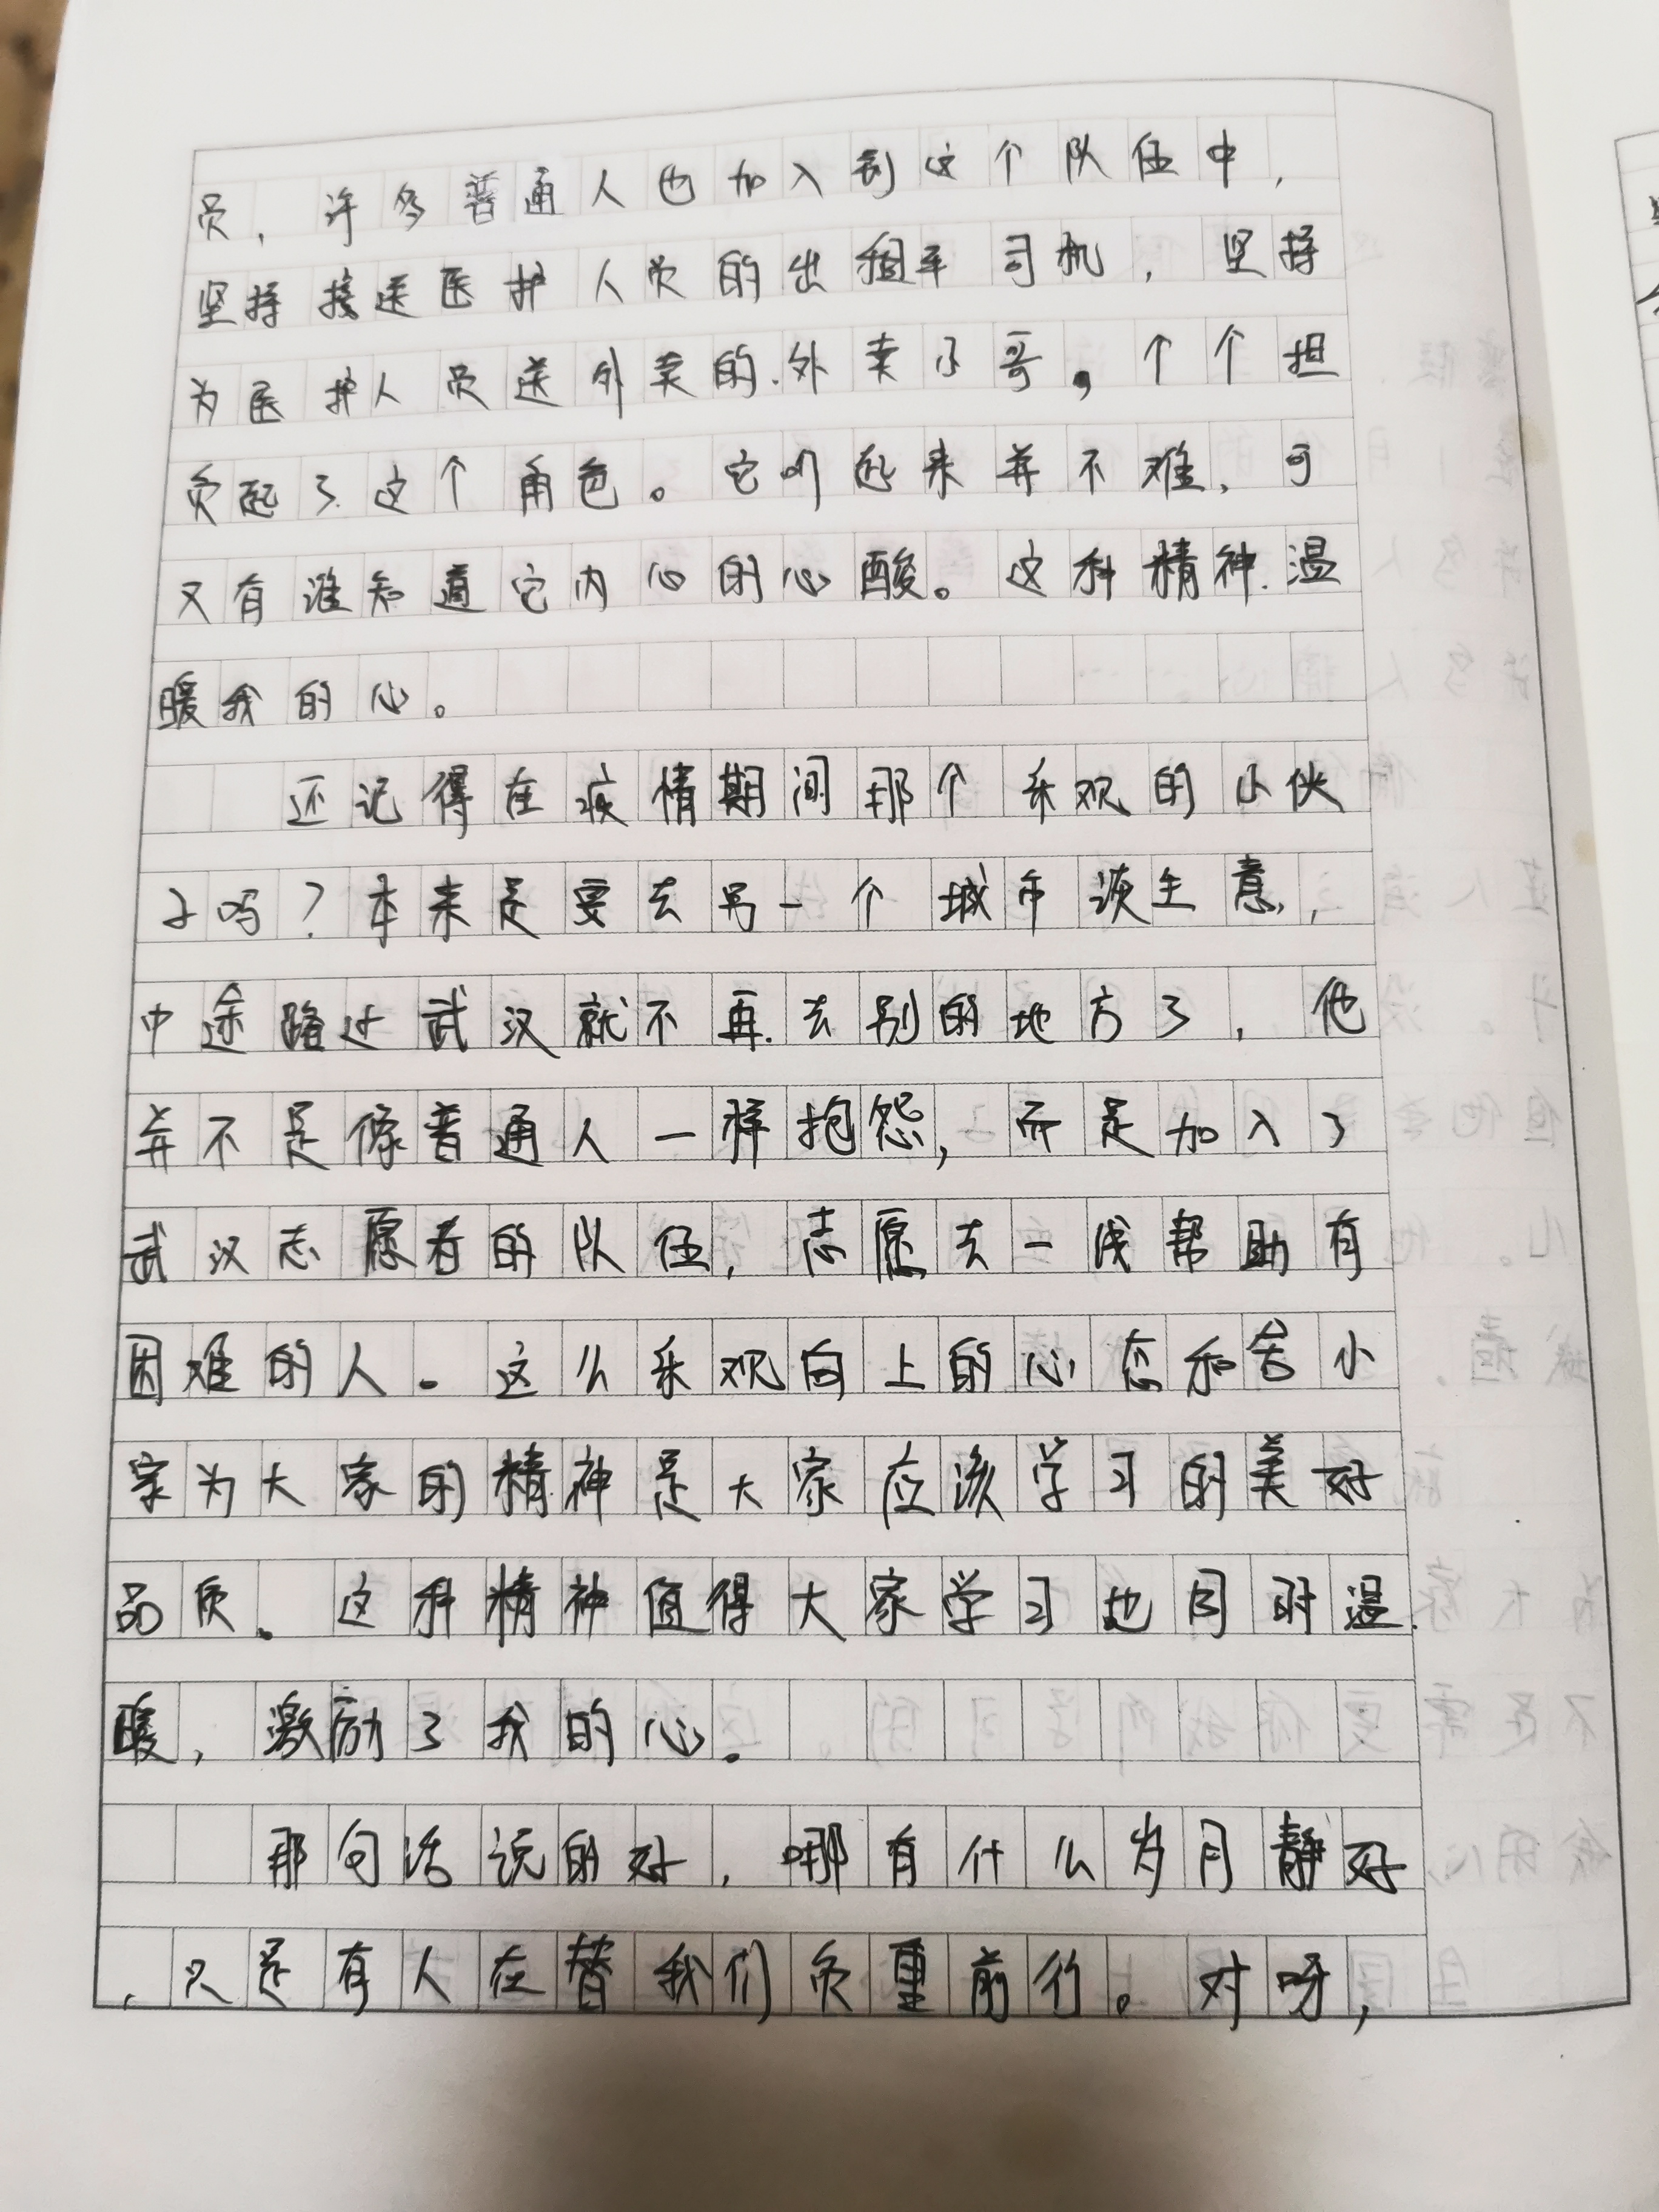 员，许多普通人也加入到这个队伍中，
坚持接送医护人员的出租车司机，坚持
为医护人员送外卖的外卖小哥，个个担
负起了这个角色。它听起来并不难，可
又有谁知道它内心的心酸。这种精神温
暖我的心。
还记得在疫情期间那个乐观的小伙
子吗？本来是要去另一个城市谈生意，
中途路过武汉就不再去别的地方了，他
并不是像普通人一样抱怨，而是加入了
武汉志愿者的队伍，志愿去一线帮助有
困难的人。这么乐观向上的心态和舍小
家为大家的精神是大家应该学习的美好
品质。这种精神值得大家学习也同时温
暖，激励了我的心。
那句话说的好，哪有什么岁月静好
，只是有人在替我们负重前行。对呀，